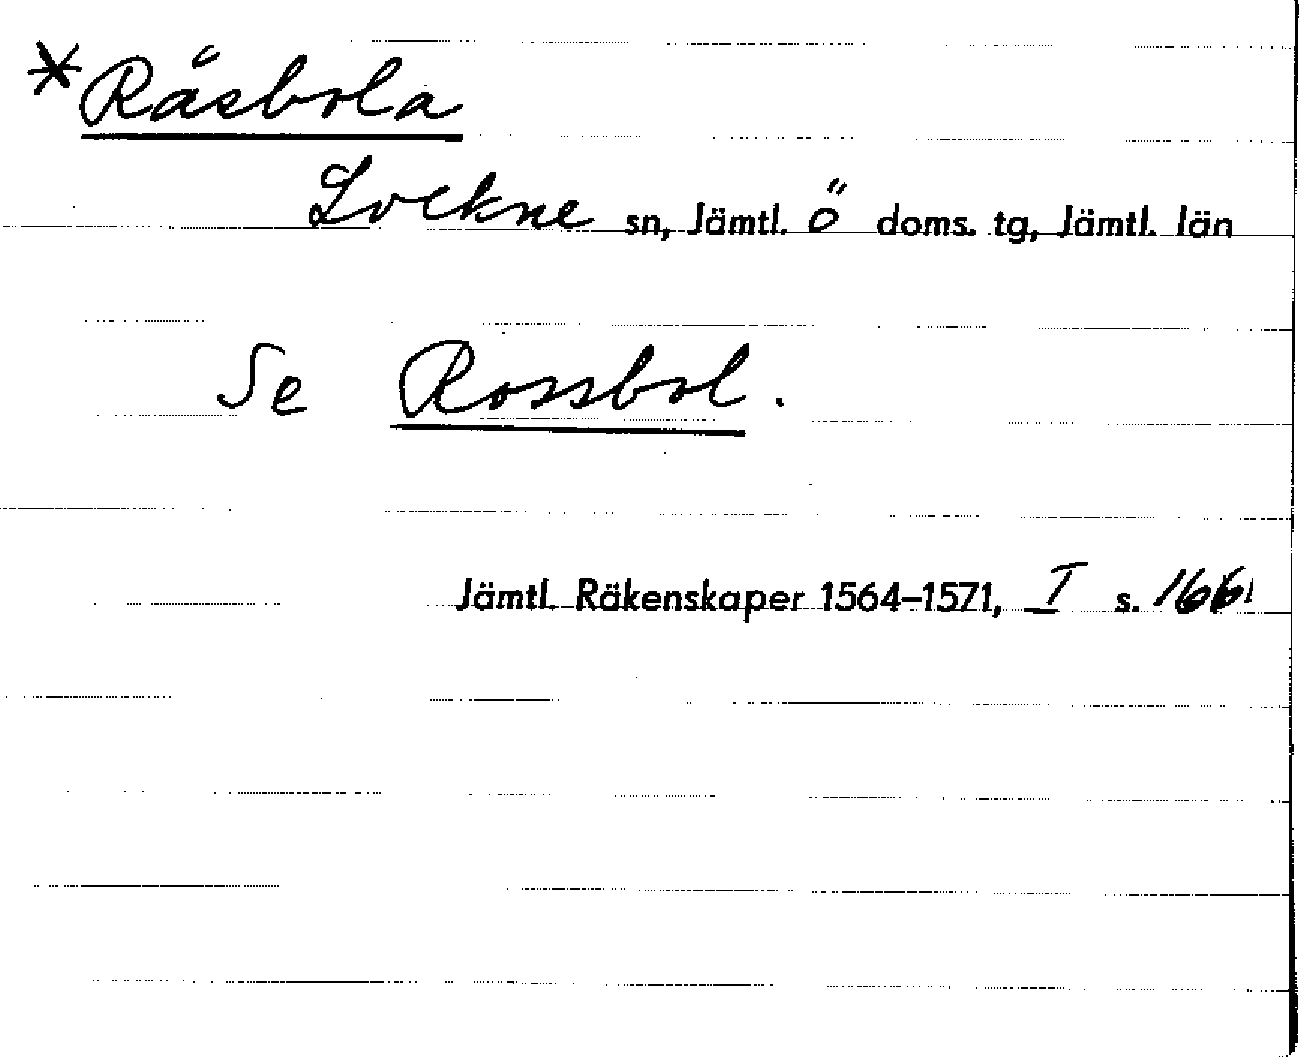 *Råsbola
Lockne sn, Jämtl. ö doms. tg, Jämtl. län
Se Rossbol.
Jämtl. Räkenskaper 1564–1571, I s. 166